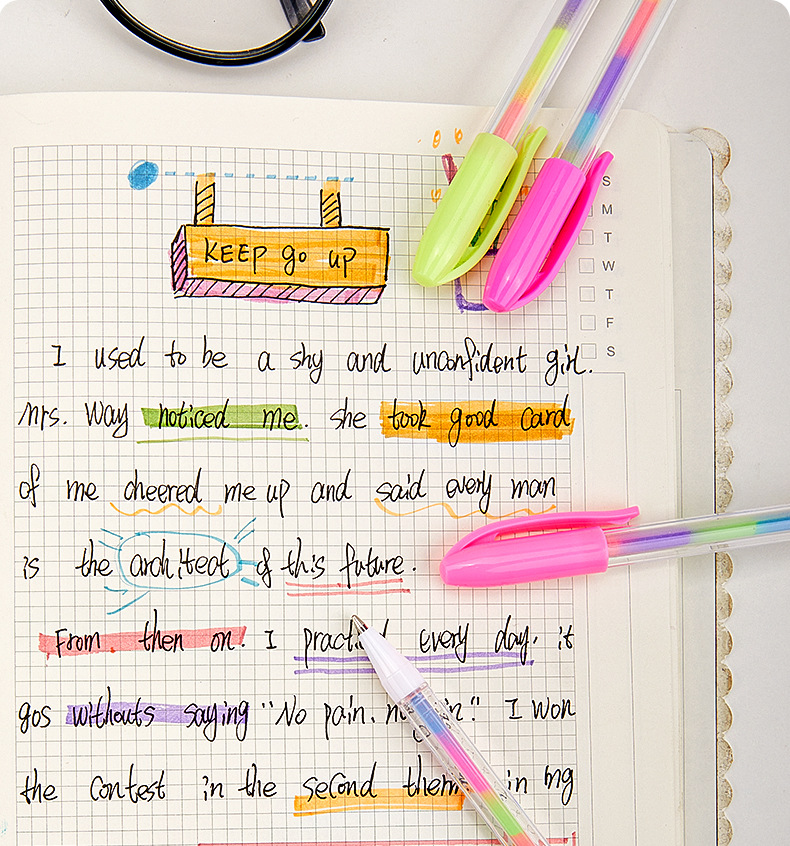 KEEP go up
S
M
T
W
T
F
S
I used to be a shy and unconfident girl.
mrs. Way noticed me. she took good card
of me cheered me up and said every man
is the architect of this future.
From then on. I practi every day. it
gos withouts saying "No pain. no in." I won
the contest in the second them in